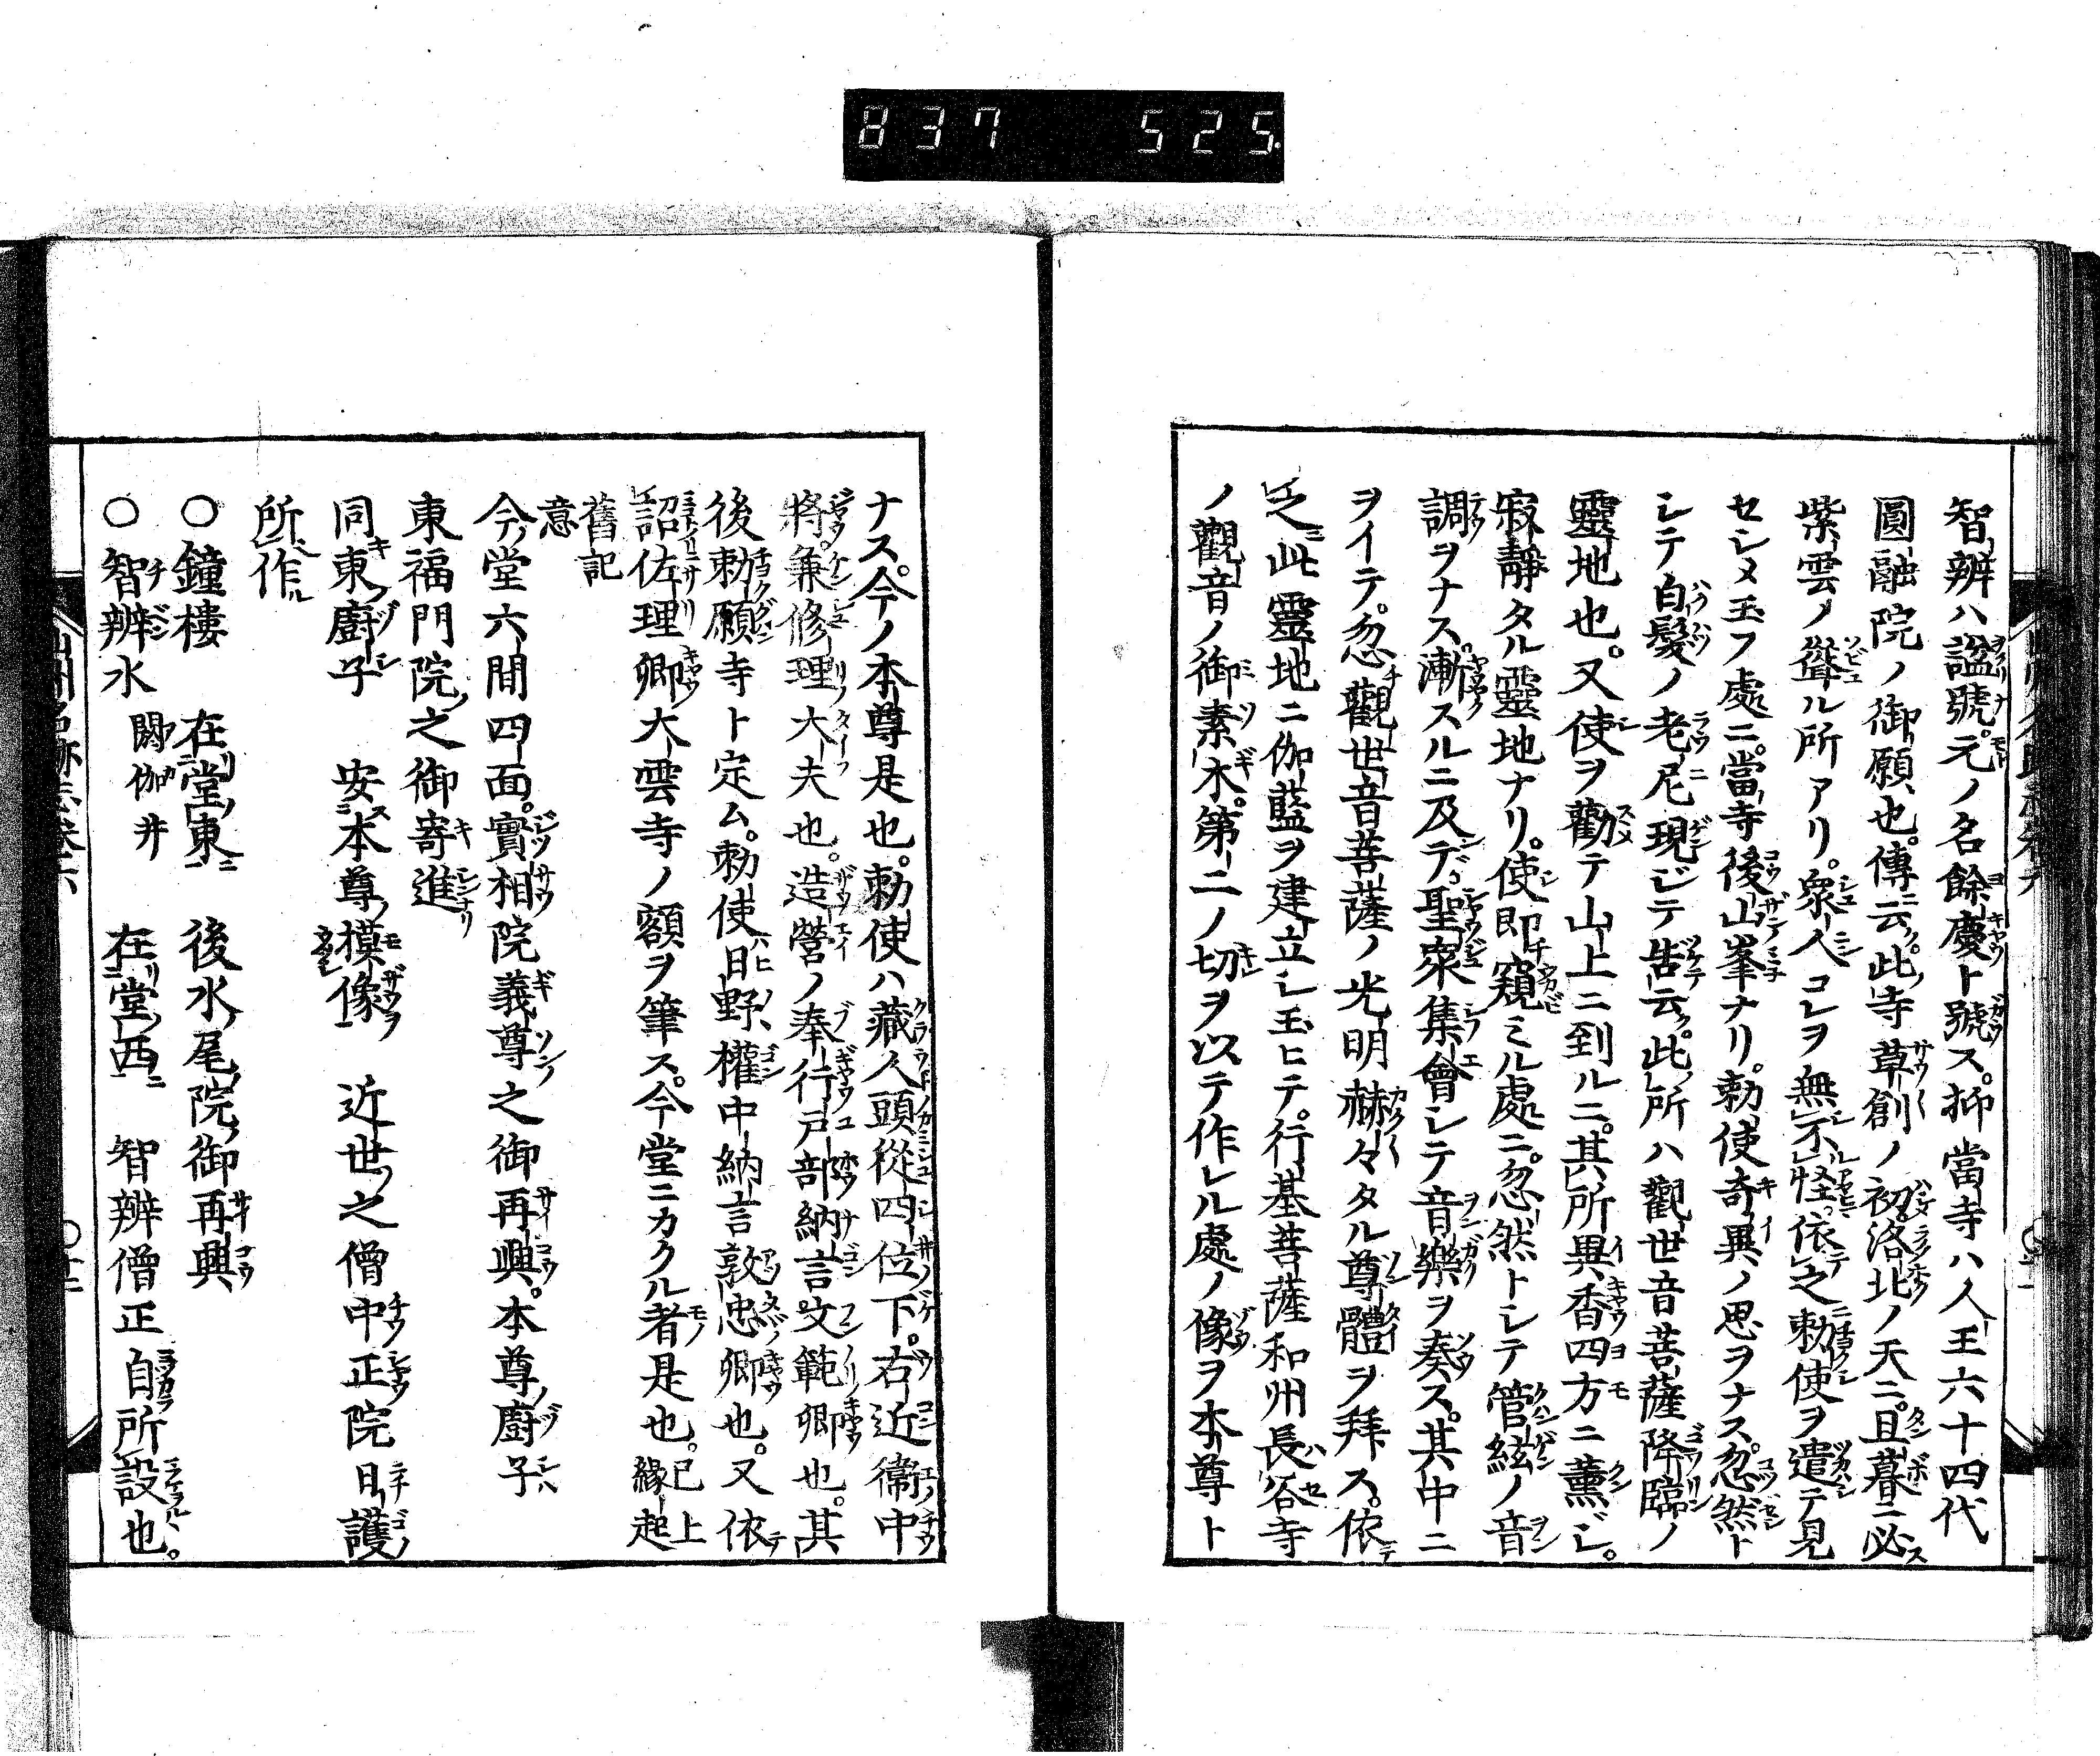 837 525
智辨ハ諡號。元ノ名餘慶ト號ス。抑當寺ハ人王六十四代
圓融院ノ御願也。傳云。此寺草創ノ初。洛北ノ天ニ。且暮ニ必ス
紫雲ノ聳ル所アリ。衆人コレヲ無不怪。依之勅使ヲ遣テ見
セシメ玉フ處ニ。當寺後山峯ナリ。勅使奇異ノ思ヲナス。忽然ト
シテ白髮ノ老尼現ジテ告云。此所ハ觀世音菩薩降臨ノ
靈地也。又使ヲ勸テ山上ニ到ルニ。其所異香四方ニ薰ジ。
寂靜タル靈地ナリ。使即窺ミル處ニ。忽然トシテ管絃ノ音
調ヲナス。漸スルニ及デ。聖衆集會シテ音樂ヲ奏ス。其中ニ
ヲイテ。忽觀世音菩薩ノ光明赫々タル尊體ヲ拜ス。依
之此靈地ニ伽藍ヲ建立シ玉ヒテ。行基菩薩和州長谷寺
ノ觀音ノ御素木。第二ノ切ヲ以テ作レル處ノ像ヲ本尊ト
ナス。今ノ本尊是也。勅使ハ藏人頭從四位下。右近衞中
將。兼修理大夫也。造營ノ奉行戸部納言文範卿也。其
後勅願寺ト定ム。勅使日野權中納言敦忠卿也。又依
詔佐理卿大雲寺ノ額ヲ筆ス。今堂ニカクル者是也。已上緣起
舊記
意
今堂六間四面。實相院義尊之御再興。本尊ノ廚子
東福門院之御寄進
同東廚子 安本尊摸像 近世之僧中正院日護
所作
○鐘樓 在堂東 後水尾院御再興
○智辨水 閼伽井 在堂西 智辨僧正自所設也。